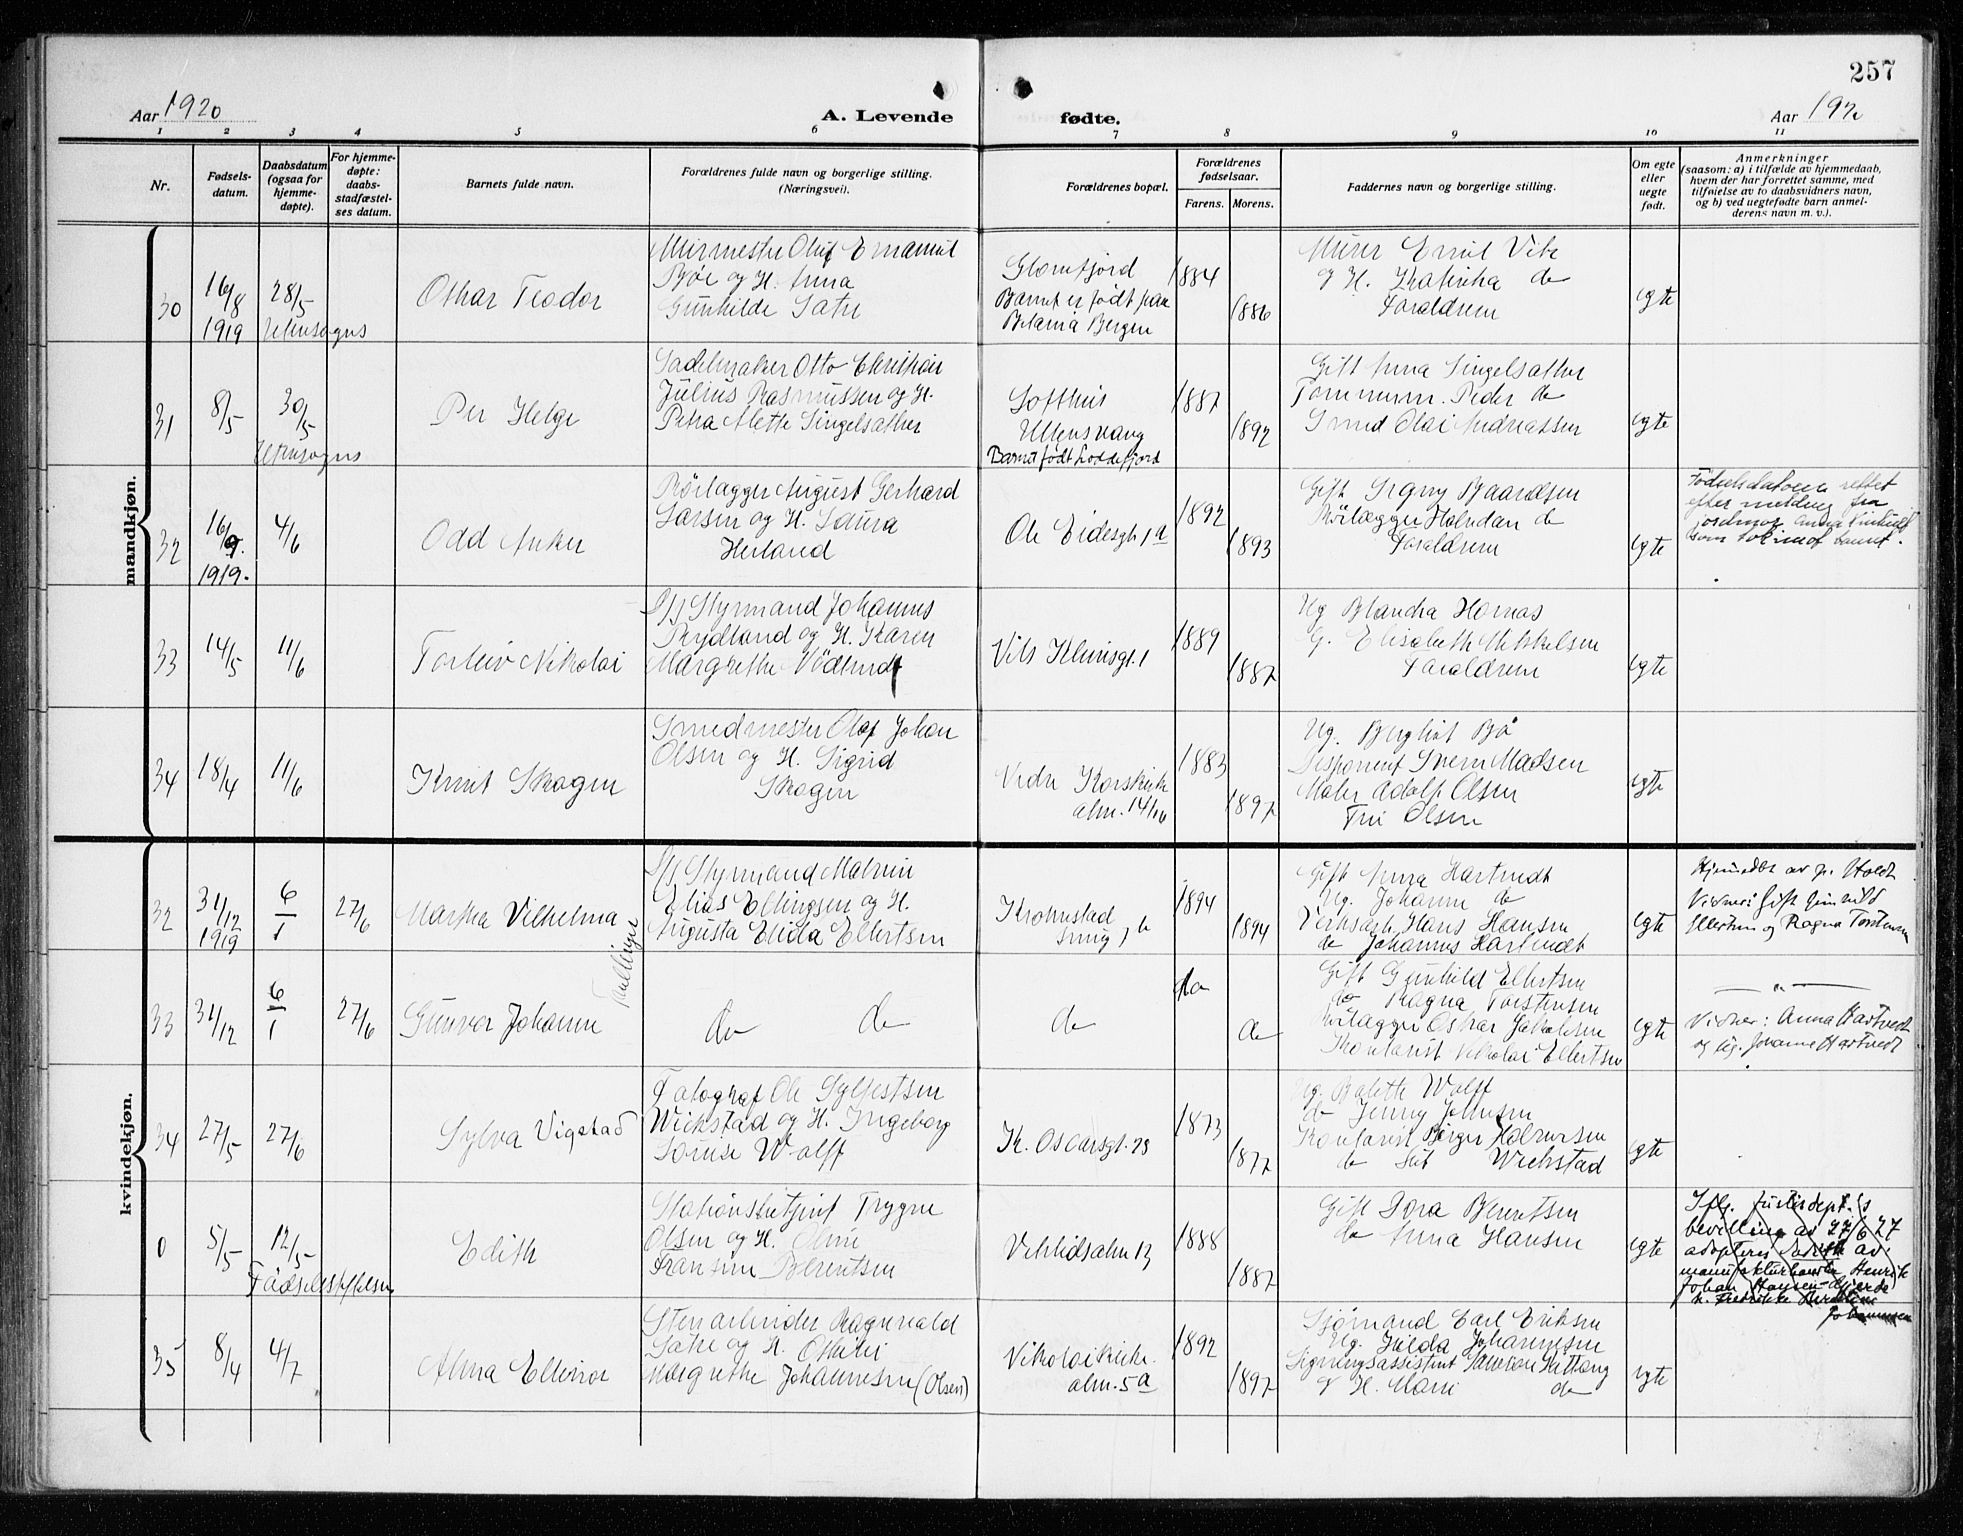 257
Aar 1920
A. Levende fødte.
Aar 192
1 2 3 4 5 6 7 8 9 10 11
Nr.
Fødsels-
datum.
Daabsdatum
(ogsaa for
hjemme-
døpte).
For hjemme-
døpte:
daabs-
stadfæstel-
ses datum.
Barnets fulde navn.
Forældrenes fulde navn og borgerlige stilling.
(Næringsvei).
Forældrenes bopæl.
Forældrenes
fødselsaar.
Farens. Morens.
Faddernes navn og borgerlige stilling.
Om egte
eller
uegte
født.
Anmerkninger
(saasom: a) i tilfælde av hjemmedaab,
hvem der har forrettet samme, med
tilføielse av to daabsvidners navn,
og b) ved uegtefødte barn anmel-
derens navn m. v.).
mandkjøn.
30
16/8
1919
28/5
Utensogns
Othar Teodor
Murmester Oluf Emanuel
Bøe og H. Anna
Gunhilde Sætre
Glomfjord
Barnet er født paa
Betania Bergen
1884
1886
Murer Emil Vik
og H. Katinka do
Forældrene
egte
31
8/5
30/5
Utensogns
Per Helge
Sadelmaker Otto Christian
Julius Rasmussen og H.
Petra Alette Singelsather
Lofthus
Ullensvang
Barnet født Loddefjord
1887
1892
Gift Anna Singelsather
Tømmerm. Peder do
Smed Olai Andreassen
egte
32
16/9.
1919.
4/6
Odd Anker
Rørlægger August Gerhard
Larsen og H. Laura
Herland
Ole Eidesgt 1a
1892
1893
Gift Signy Baardsen
Rørlægger Halvdan do
Forældrene
egte
Fødselsdatoen rettet
efter melding fra
jordmor Anna
som tok imot barnet.
33
14/5
11/6
Torleiv Nikolai
Styrmand Johannes
Rydland og H. Karen
Margrethe Vødlund
Nils Klimsgt. 1
1889
1887
Ug Blanca Hornas
G. Elisabeth Mikkelsen
Forældrene
egte
34
18/4
11/6
Knut Skogen
Smedmester Olaf Johan
Olsen og H. Sigrid
Skogen
Nedre Korskirke
alm. 14
1883
1897
Ug. Bergliot Bø
Disponent Sverre Madsen
Maler Adolf Olsen
Fru Olsen
egte
kvindekjøn.
32
31/12
1919
6/1
27/6
Martha Vilhelma
Tvillinger
Styrmand Malvin
Elias Ellingsen og H.
Augusta Elida Ellertsen
Kronstad
1894
1894
Gift Anna Hartvedt
Ug. Johanne do
Hans Hansen
do Johannes Hartvedt
egte
Hjemmedbt av p. Holdt
Vidner: Gift Gunhild
Ellertsen og Ragna Torstensen
33
31/12
6/1
27/6
Gunvor Johanne
do do
do
do
do
Gift Gunhild Ellertsen
do Ragna Torstensen
Rørlægger Oskar Jakobsen
Kontorist Nikolai Ellertsen
egte
— " —
Vidner: Anna Hartvedt
og ug. Johanne Hartvedt
34
27/5
27/6
Sylva Vigstad
Fotograf Ole Sylfestsen
Wickstad og H. Ingeborg
Lovise Wolff
K. Oscarsgt. 73
1873
1877
Ug. Balette Wolff
do Jenny Johnsen
Kontorist Birger Halvorsen
do Wickstad
egte
0
5/5
12/5
Fødselsstiftelsen
Edith
Stationsbetjent Trygve
Olsen og H. Oline
Fransine Berentsen
Vetrlidsalm 13
1888
1887
Gift Dora Berentsen
do Anna Hansen
egte
Iflg. Justisdept.s
bevilling av 27/6 27
adopteres Edith av
manufakturhandler Henrik
Johan Hansen
h. Fredrikke
Johannesen
35
8/4
4/7
Anna Ellenor
Stenarbeider Ragnvald
Sætre og H. Othilie
Margrethe Johannesen (Olsen)
Nikolaikirke.
alm. 5a
1892
1897
Sjømand Carl Eriksen
Ug. Hilda Johannesen
Signringsassistent
& H. Marie do
egte